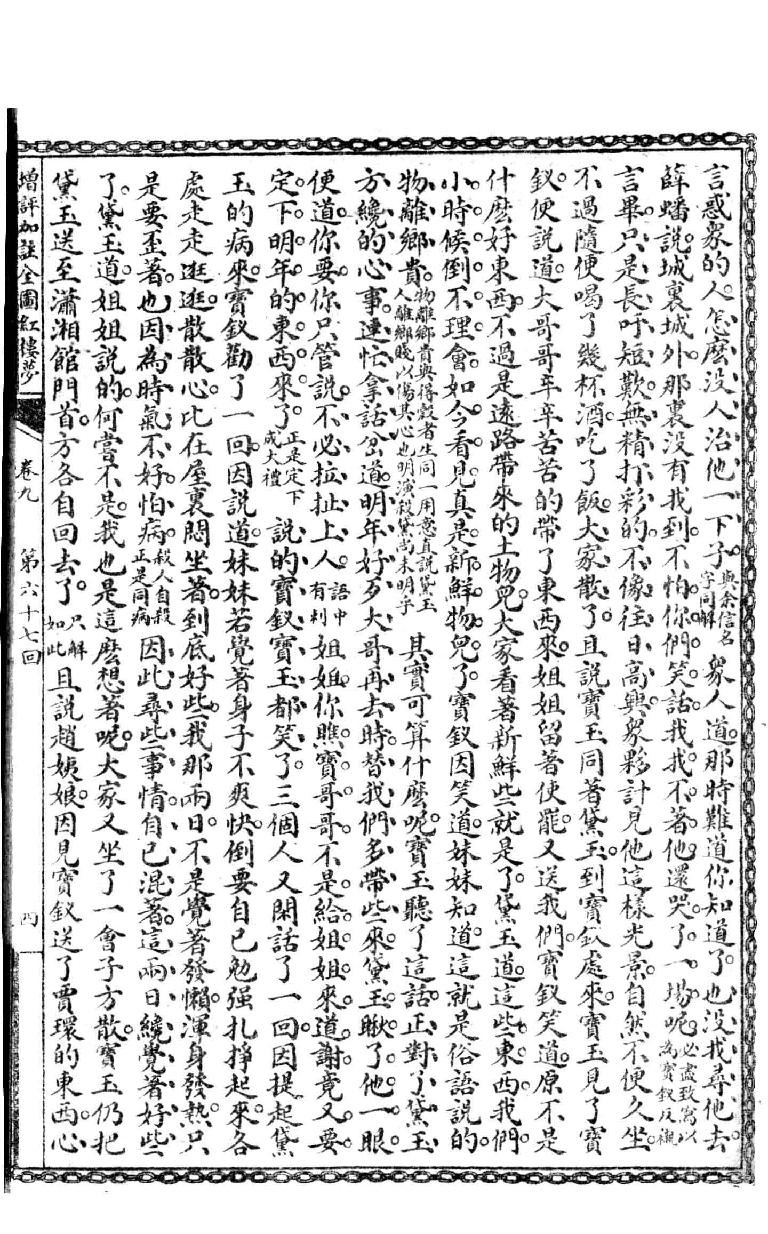 言惑衆的人怎麽没人治他一下子與余信名字同解衆人道那時難道你知道了也没找尋他去
薛蟠説城裏城外那裏没有找到不怕你們笑話我找不著他還哭了一塲呢必盡致寫以為寳釵反襯
言畢只是長吁短歎無精打彩的不像往日高興衆夥計見他這樣光景自然不便久坐
不過隨便喝了幾杯酒吃了飯大家散了且説寳玉同著黛玉到寳釵處來寳玉見了寳
釵便説道大哥哥辛辛苦苦的帶了東西來姐姐留著使罷又送我們寳釵笑道原不是
什麽好東西不過是遠路帶來的土物兒大家看著新鮮些就是了黛玉道這些東西我們
小時候倒不理會如今看見真是新鮮物兒了寳釵因笑道妹妹知道這就是俗語説的
物離鄉貴物離鄉貴與得穀者生同一用意直説黛玉人離鄉賤以傷其心也明演殺黛尚未明乎其實可算什麽呢寳玉聽了這話正對了黛玉
方纔的心事連忙拿話岔道明年好歹大哥再去時替我們多帶些來黛玉瞅了他一眼
便道你要你只管説不必拉扯上人語中有刺姐姐你瞧寳哥哥不是給姐姐來道謝竟又要
定下明年的東西來了正是定下成大禮説的寳釵寳玉都笑了三個人又閑話了一回因提起黛
玉的病來寳釵勸了一回因説道妹妹若覺著身子不爽快倒要自已勉强扎掙起來各
處走走逛逛散散心比在屋裏悶坐著到底好些我那兩日不是覺著發懶渾身發熱只
是要歪著也因為時氣不好怕病殺人自殺正是同病因此尋些事情自已混著這兩日纔覺著好些
了黛玉道姐姐説的何嘗不是我也是這麽想著呢大家又坐了一會子方散寳玉仍把
黛玉送至瀟湘館門首方各自回去了只解如此且説趙姨娘因見寳釵送了賈環的東西心
增評加註全圖紅樓夢 卷九 第六十七回 四